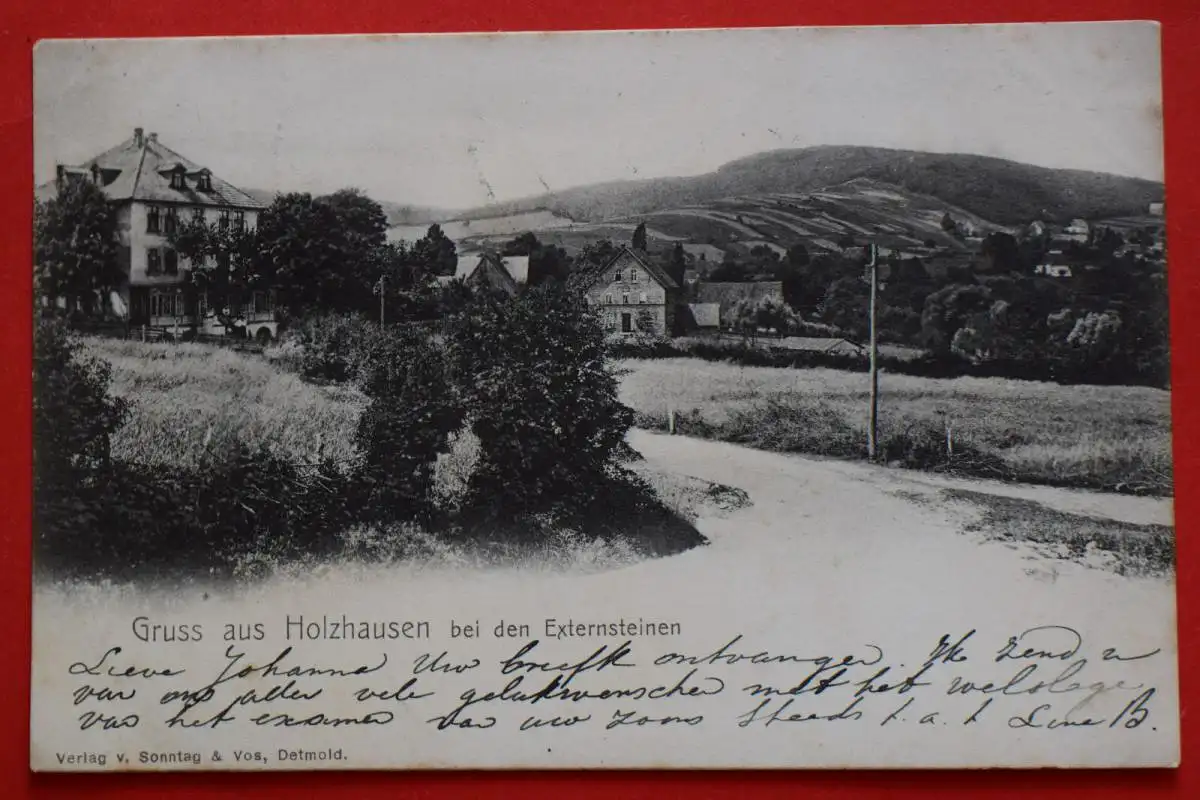 Gruss aus Holzhausen bei den Externsteinen
Lieve Johanna Uw briefk ontvangen. Ik zend u
van ons allen vele gelukwenschen met het welslagen
van het examen van uw zoons Steeds t. a. t. Line B.
Verlag v. Sonntag & Vos, Detmold.